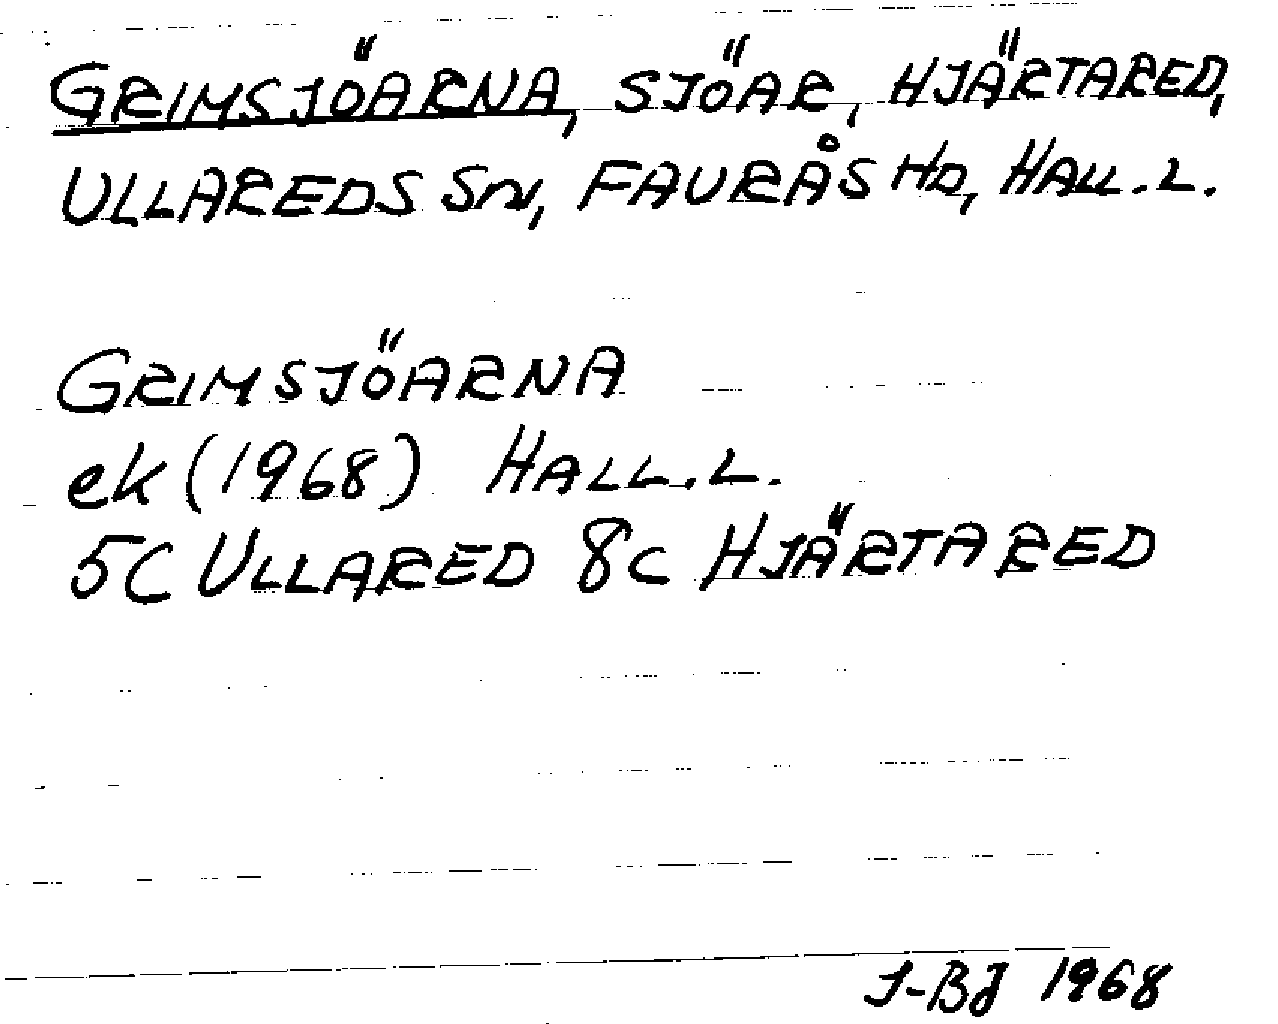 GRIMSJÖARNA, SJÖAR, HJÄRTARED,
ULLAREDS SN, FAURÅS HD, HALL.L.
GRIMSJÖARNA
ek (1968) HALL.L.
5C ULLARED 8C HJÄRTARED
I-BJ 1968